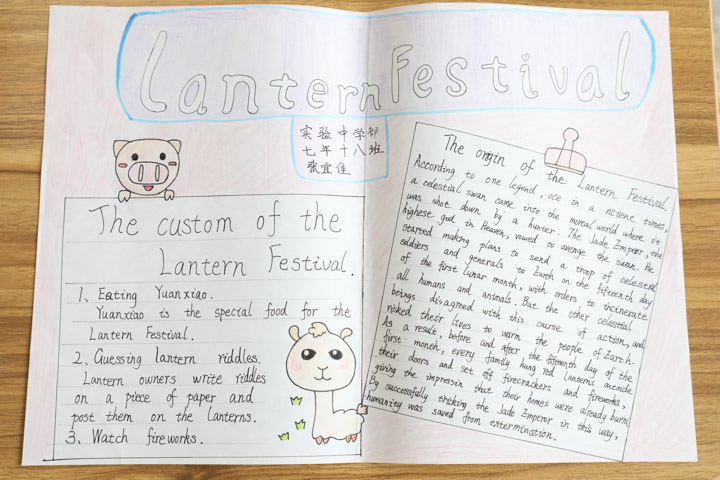 Lantern Festival
实验中学部
七年十八班
张宜佳
The custom of the
Lantern Festival.
1、Eating Yuanxiao.
Yuanxiao is the special food for the
Lantern Festival.
2、Guessing lantern riddles.
Lantern owners write riddles
on a piece of paper and
post them on the lanterns.
3、Watch fireworks.
The origin of the Lantern Festival.
According to one legend, oce in a nctent times,
a celestial swan came into the moreal world where it
was shot down by a hunter. The Jade Emperor, the
highese god in Heaven, vowed to avenge the swan. He
started making plans to send a troop of celestial
soldiers and generals to Earch on the fifteenth day
of the first lunar month, with orders to incinerate
all humans and animals. But the other celestial
beings disagreed with this course of action, and
risked their lives to warm the people of Earth.
As a result, before and after the fifteenth day of the
first month, every family hung red lanterns outside
their doors and set off firecrackers and fireworks,
giving the impressin that their homes were already burm,
By successfully tricking the Jade Emperor in this way,
humanity was saved from extermination.